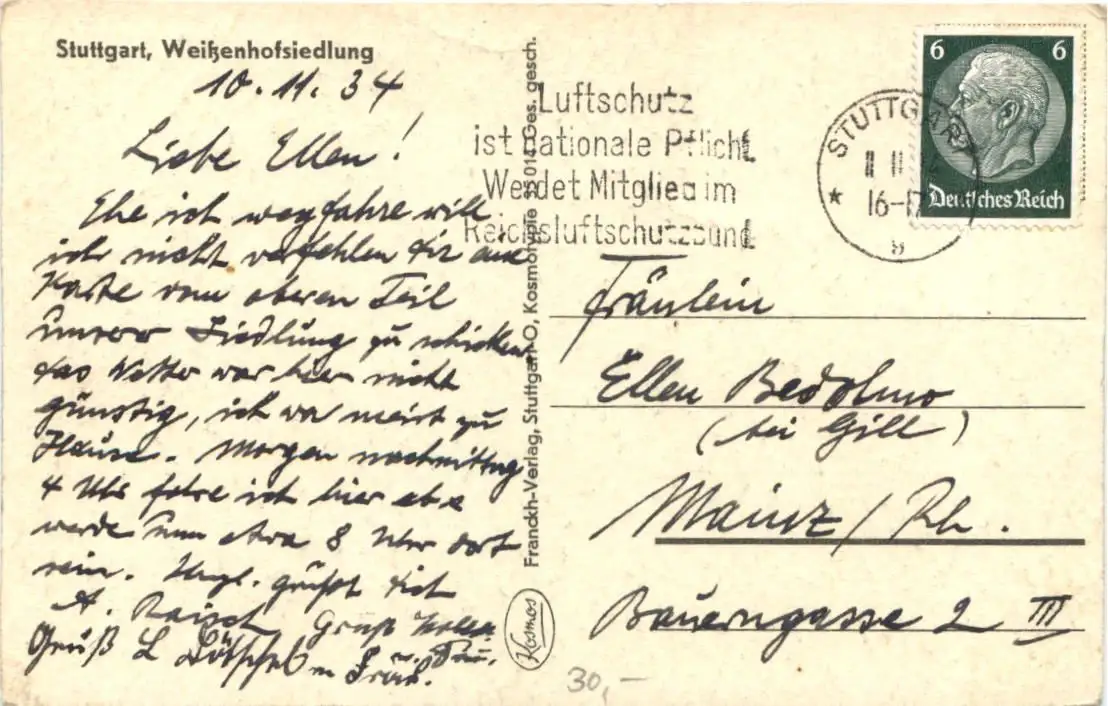 Stuttgart, Weißenhofsiedlung
10. 11. 34
Liebe Ellen!
Ehe ich wegfahre will
ich nicht verfehlen Dir eine
Karte vom oberen Teil
unserer Siedlung zu schicken
das Wetter war hier nicht
günstig, ich wa meist zu
Hause. Morgen nachmittag
4 Uhr fahre ich hier ab &
werde um etwa 8 Uhr dort
sein. grüßt Dich
A. Raisch Gruß
Gruß L
Franckh-Verlag, Stuttgart-O, Kosmotypie Ges. gesch.
Kosmos
Luftschutz
ist nationale Pflicht
Werdet Mitglied im
Reichsluftschutzbund
STUTTGART
11 11
16-17
9
6 6
Deutsches Reich
Fräulein
Ellen
(bei Gill)
Mainz / Rh.
Bauerngasse 2 III
30,-